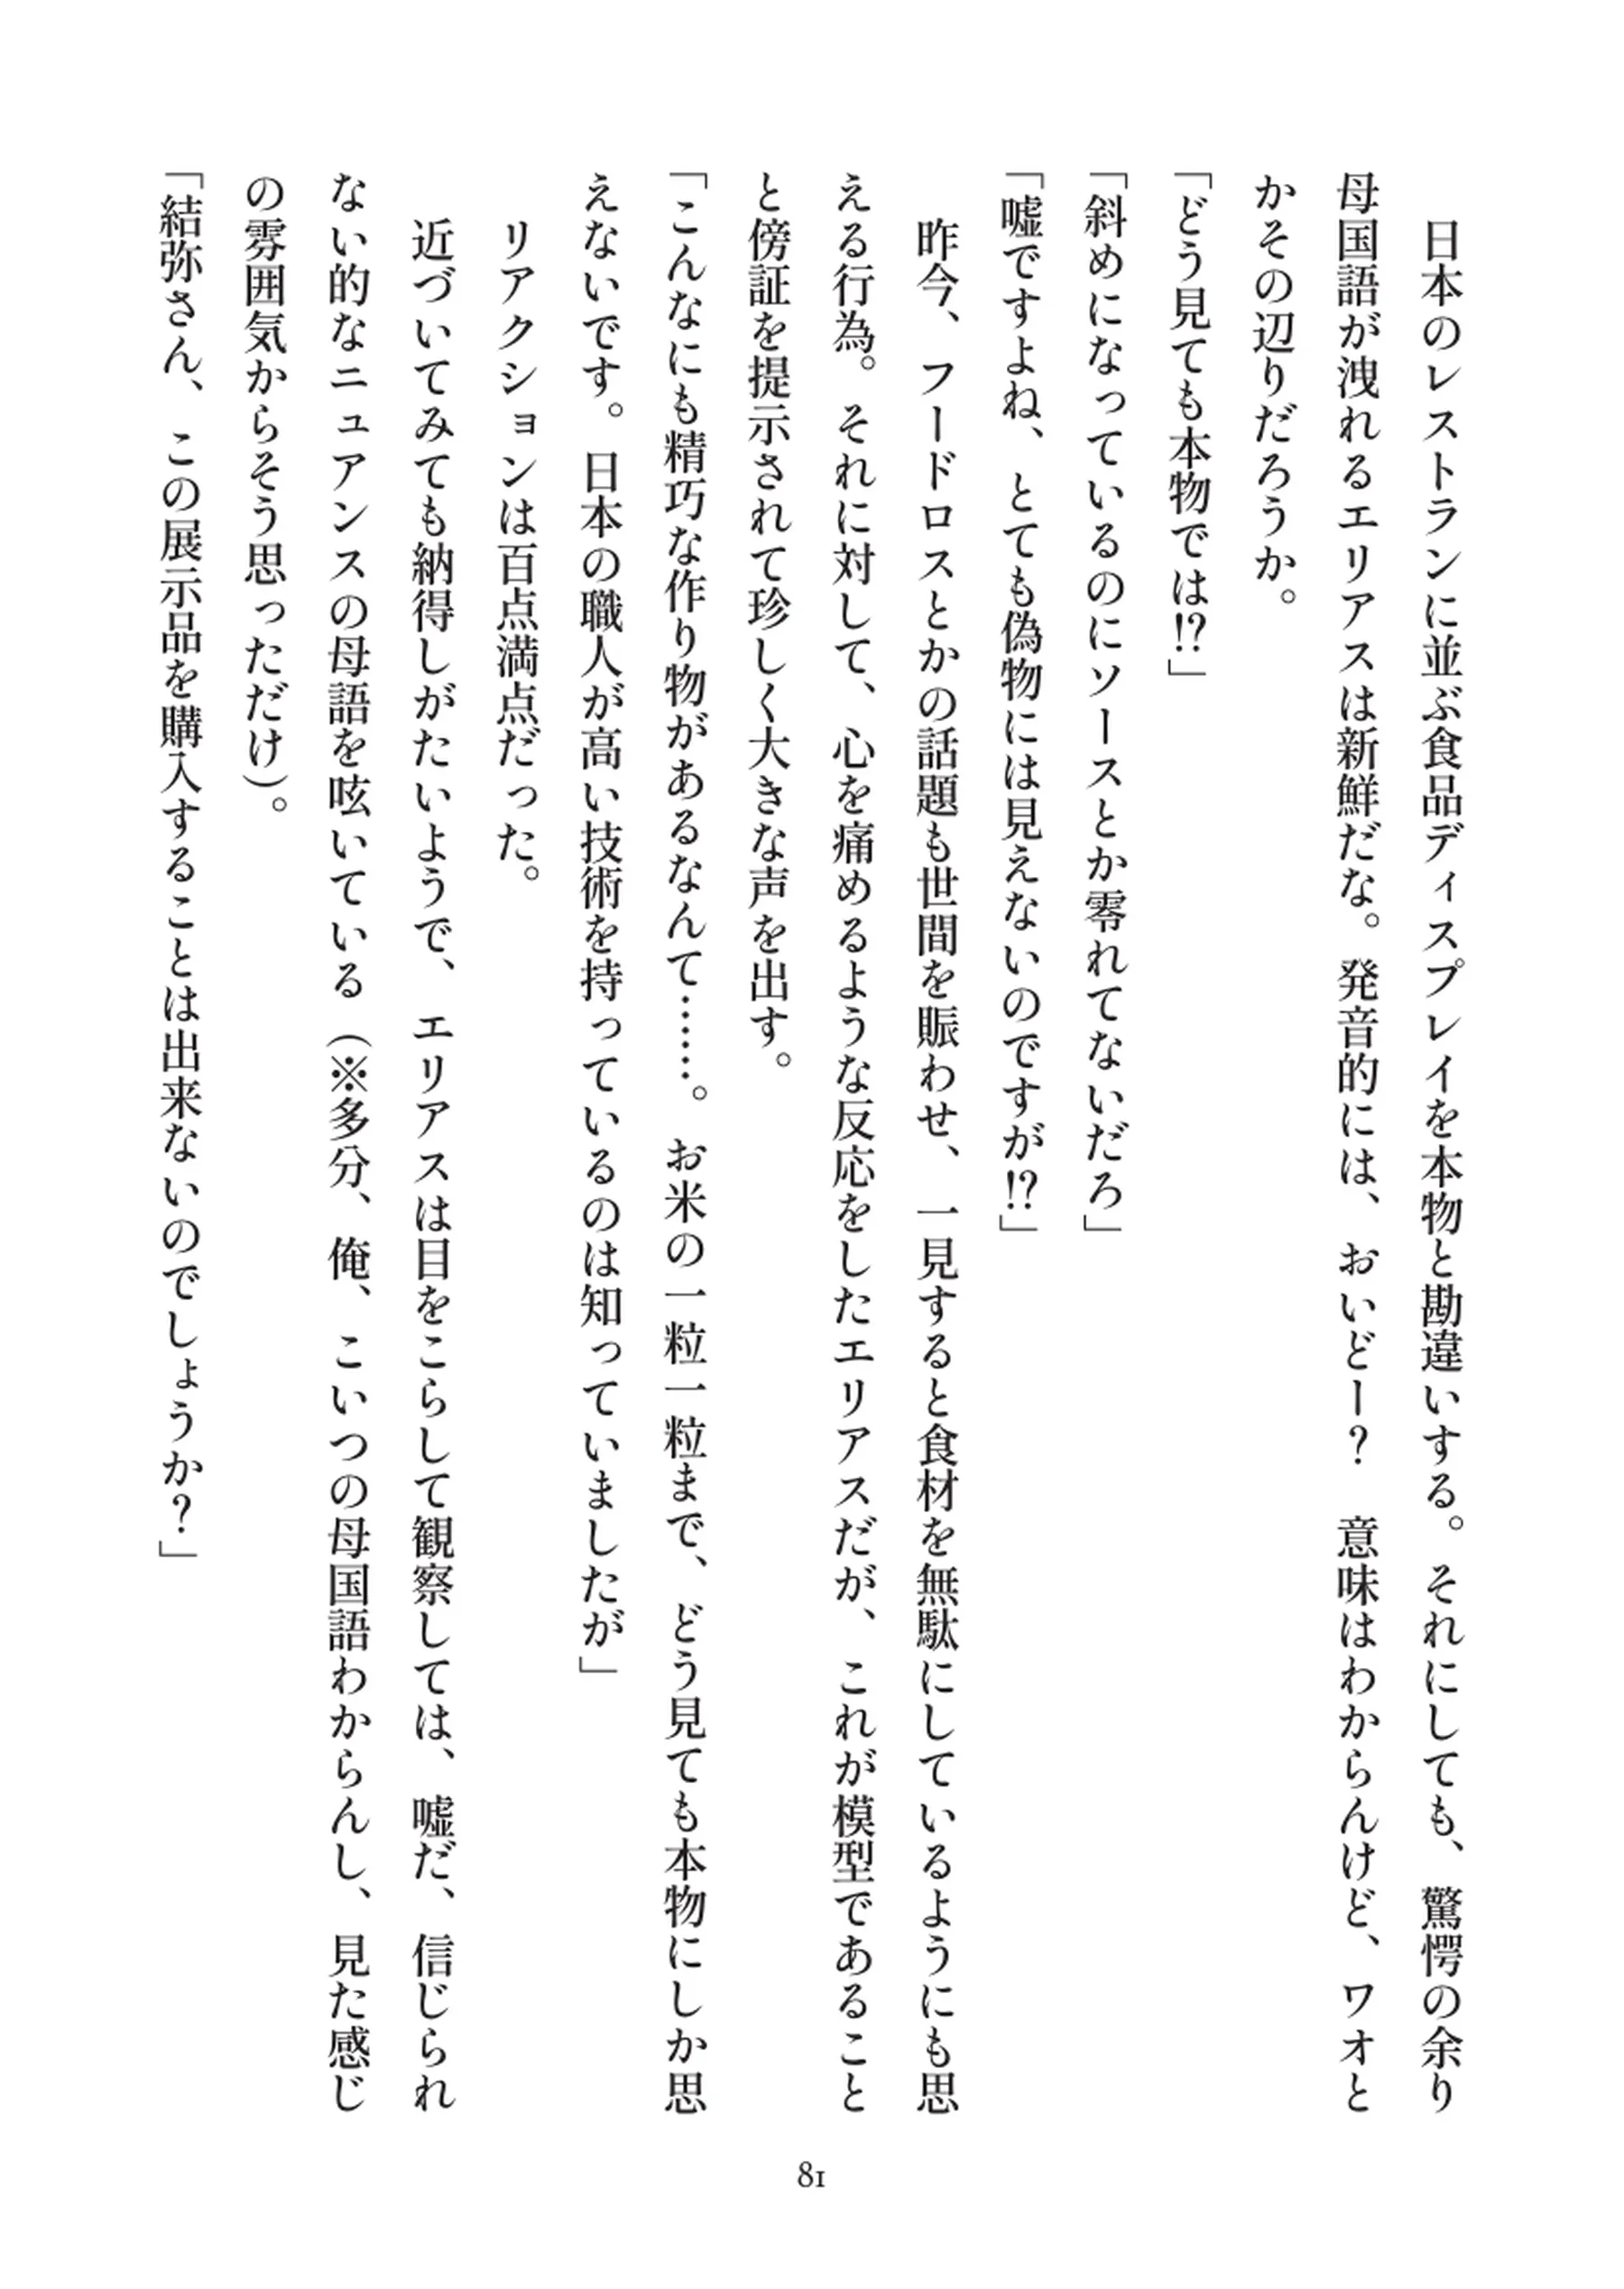 日本のレストランに並ぶ食品ディスプレイを本物と勘違いする。それにしても、驚愕の余り
母国語が洩れるエリアスは新鮮だな。発音的には、おいどー？　意味はわからんけど、ワオと
かその辺りだろうか。
「どう見ても本物では⁉」
「斜めになっているのにソースとか零れてないだろ」
「嘘ですよね、とても偽物には見えないのですが⁉」
　昨今、フードロスとかの話題も世間を賑わせ、一見すると食材を無駄にしているようにも思
える行為。それに対して、心を痛めるような反応をしたエリアスだが、これが模型であること
と傍証を提示されて珍しく大きな声を出す。
「こんなにも精巧な作り物があるなんて……。お米の一粒一粒まで、どう見ても本物にしか思
えないです。日本の職人が高い技術を持っているのは知っていましたが」
　リアクションは百点満点だった。
　近づいてみても納得しがたいようで、エリアスは目をこらして観察しては、嘘だ、信じられ
ない的なニュアンスの母語を呟いている（※多分、俺、こいつの母国語わからんし、見た感じ
の雰囲気からそう思っただけ）。
「結弥さん、この展示品を購入することは出来ないのでしょうか？」
81